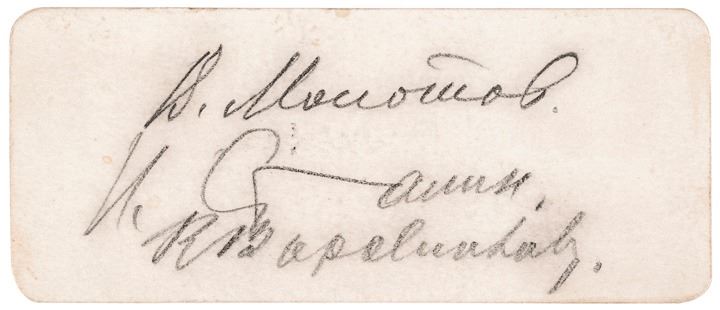 В. Молотов.
И. Сталин.
К Ворошилов.